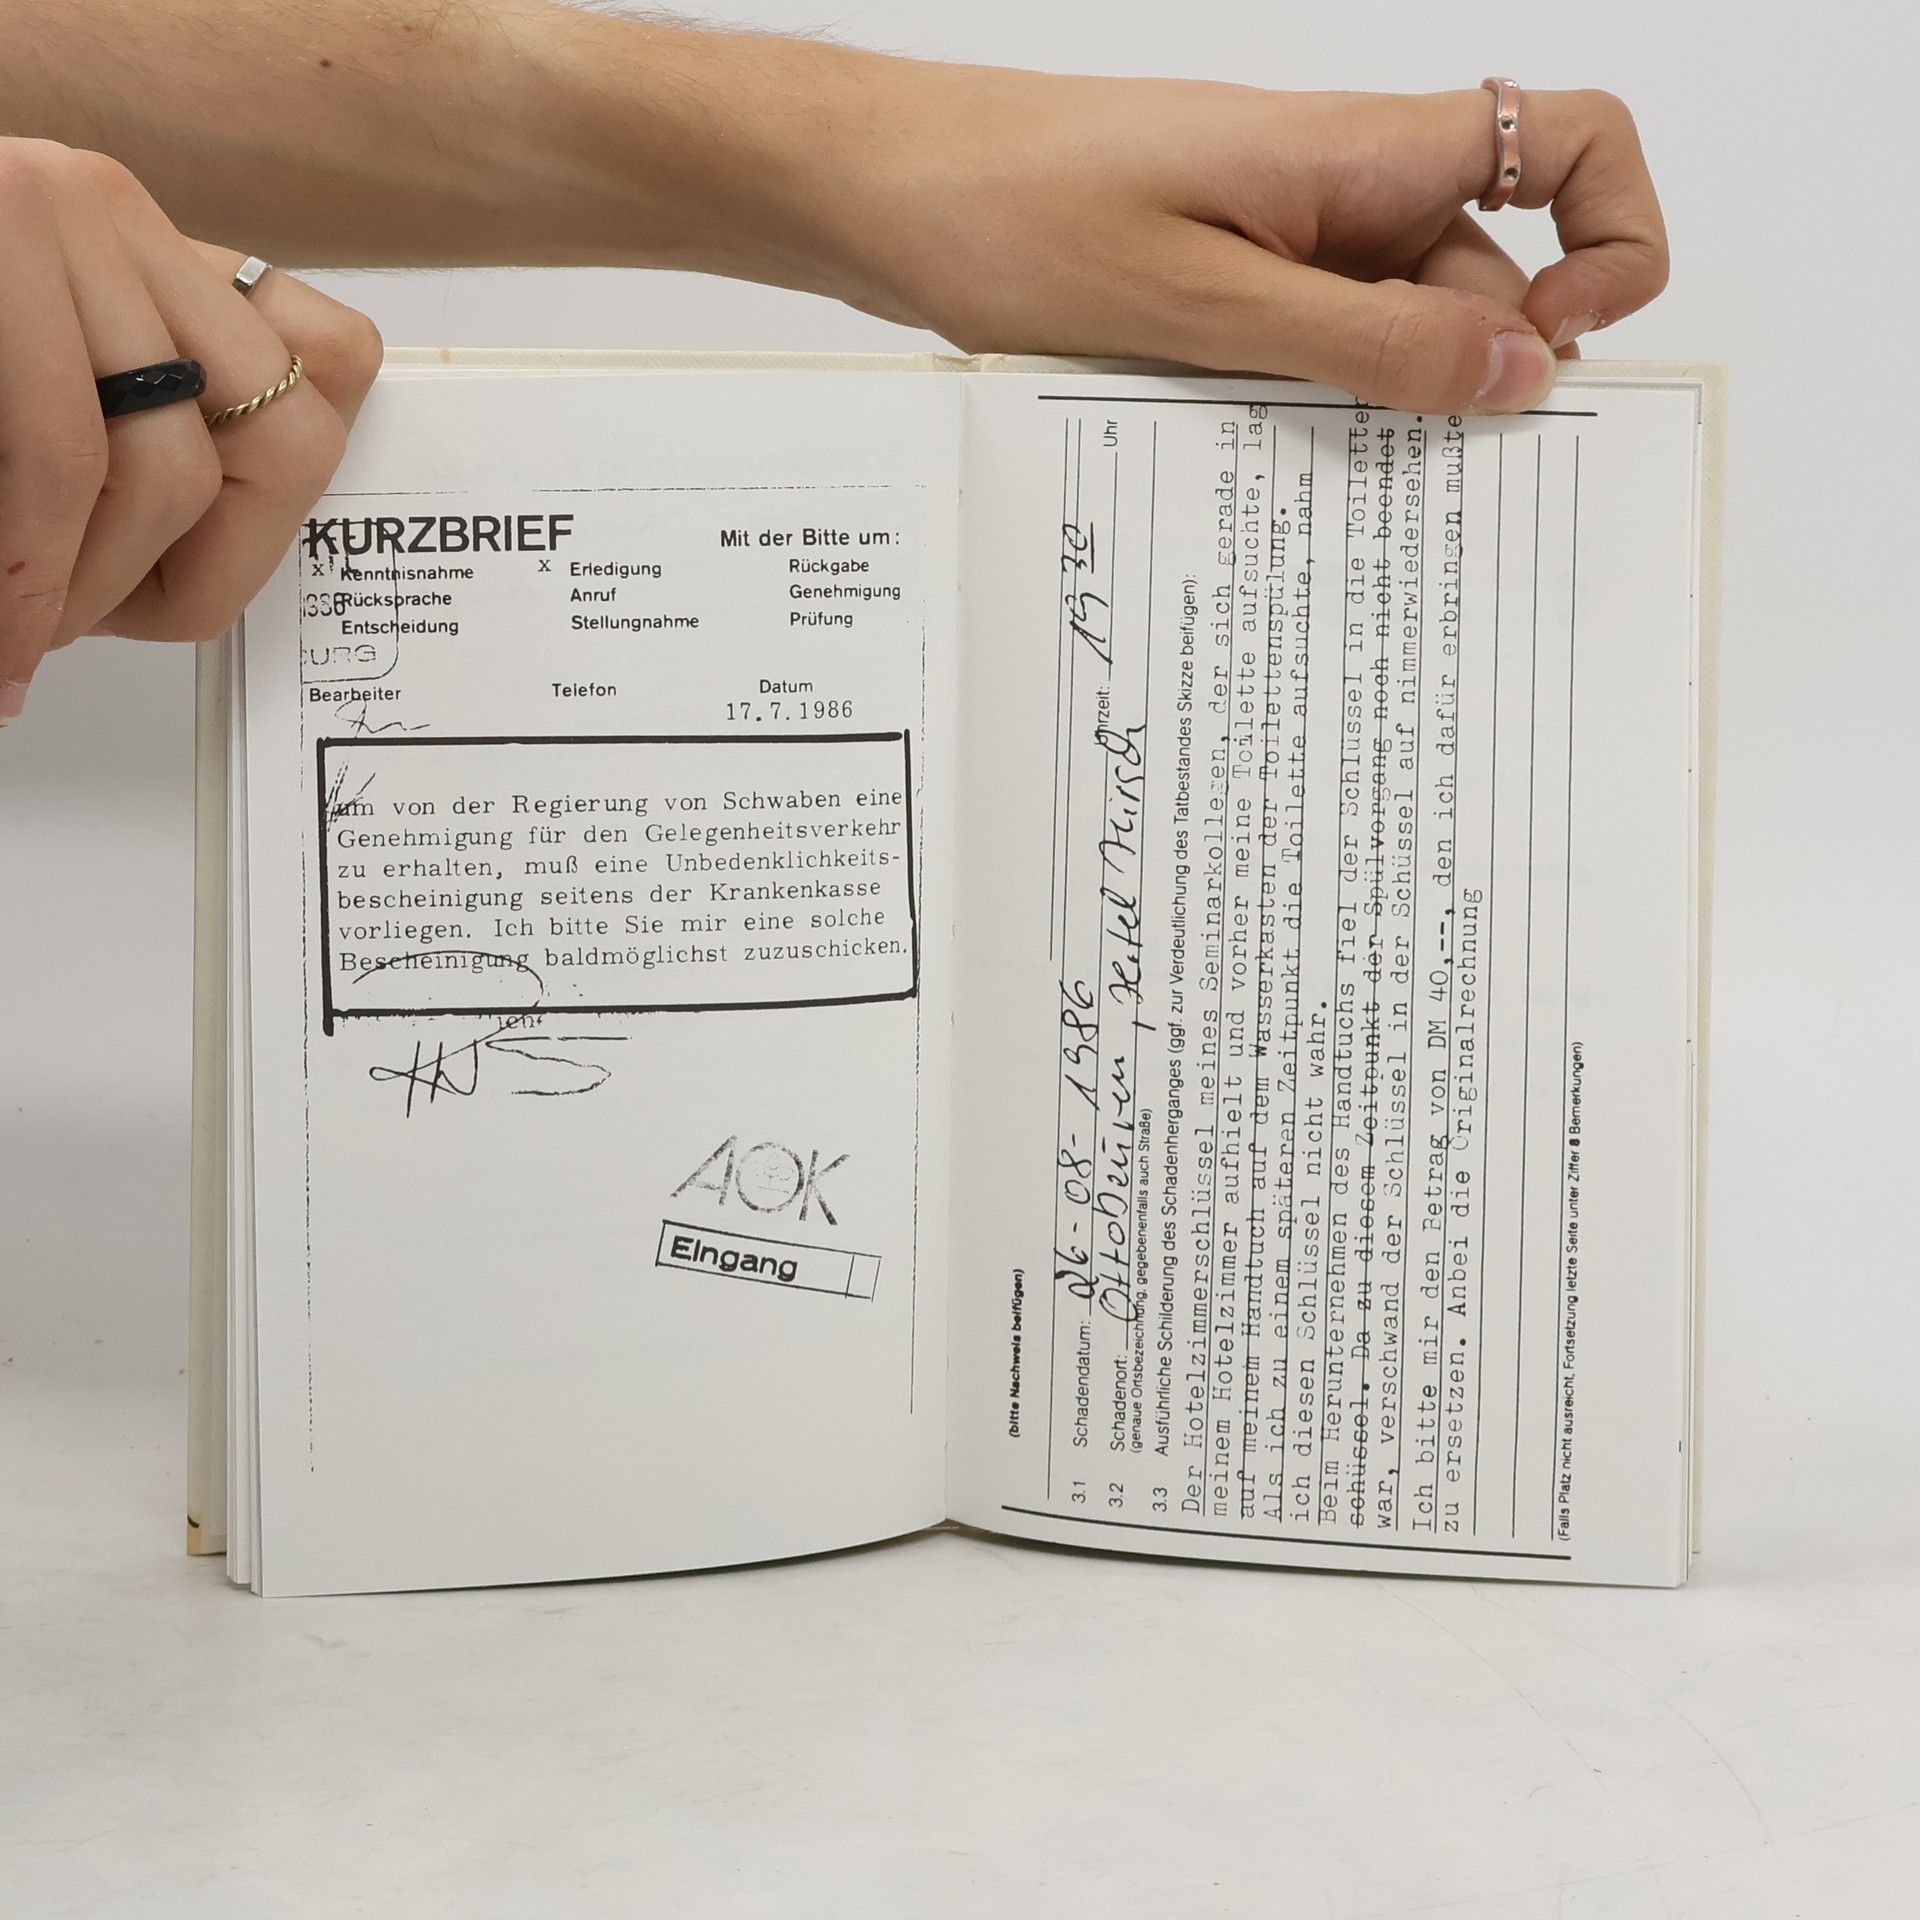 KURZBRIEF
Mit der Bitte um:
x Kenntnisnahme x Erledigung Rückgabe
Rücksprache Anruf Genehmigung
Entscheidung Stellungnahme Prüfung
Bearbeiter Telefon Datum
17.7.1986
um von der Regierung von Schwaben eine
Genehmigung für den Gelegenheitsverkehr
zu erhalten, muß eine Unbedenklichkeits-
bescheinigung seitens der Krankenkasse
vorliegen. Ich bitte Sie mir eine solche
Bescheinigung baldmöglichst zuzuschicken.
AOK
Eingang
(bitte Nachweis beifügen)
3.1 Schadendatum: 26-08-1986
3.2 Schadenort: Ottobeuren, Hotel Hirsch Uhrzeit: 19 30 Uhr
(genaue Ortsbezeichnung, gegebenenfalls auch Straße)
3.3 Ausführliche Schilderung des Schadenherganges (ggf. zur Verdeutlichung des Tatbestandes Skizze beifügen):
Der Hotelzimmerschlüssel meines Seminarkollegen, der sich gerade in
meinem Hotelzimmer aufhielt und vorher meine Toilette aufsuchte, lag
auf meinem Handtuch auf dem Wasserkasten der Toilettenspülung.
Als ich zu einem späteren Zeitpunkt die Toilette aufsuchte, nahm
ich diesen Schlüssel nicht wahr.
Beim Herunternehmen des Handtuchs fiel der Schlüssel in die Toiletten
schüssel. Da zu diesem Zeitpunkt der Spülvorgang noch nicht beendet
war, verschwand der Schlüssel in der Schüssel auf nimmerwiedersehen.
Ich bitte mir den Betrag von DM 40,--, den ich dafür erbringen mußte
zu ersetzen. Anbei die Originalrechnung
(Falls Platz nicht ausreicht, Fortsetzung letzte Seite unter Ziffer 8 Bemerkungen)